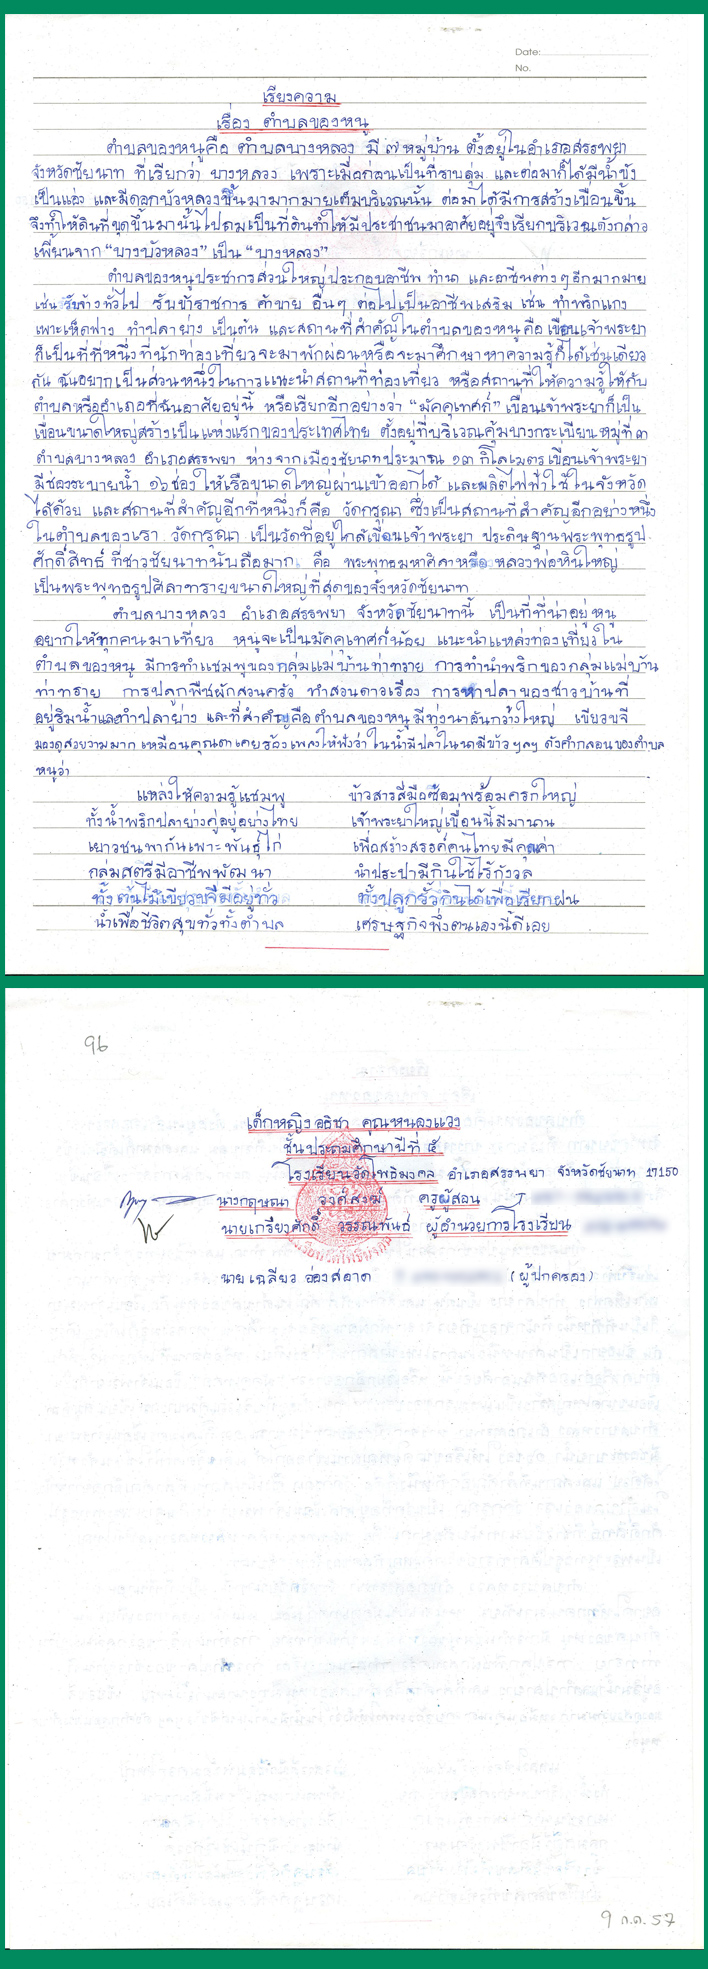 Date:
No.
เรียงความ
เรื่อง ตำบลของหนู
ตำบลของหนูคือ ตำบลบางหลวง มี ๗ หมู่บ้าน ตั้งอยู่ในอำเภอสรรพยา
จังหวัดชัยนาท ที่เรียกว่า บางหลวง เพราะเมื่อก่อนเป็นที่ราบลุ่ม และต่อมาก็ได้มีน้ำขัง
เป็นแอ่ง และมีดอกบัวหลวงขึ้นมามากมายเต็มบริเวณนั้น ต่อมาได้มีการสร้างเขื่อนขึ้น
จึงทำให้ดินที่ขุดขึ้นมานั้นไปถมเป็นที่ดินทำให้มีประชาชนมาอาศัยอยู่จึงเรียกบริเวณดังกล่าว
เพี้ยนจาก “บางบัวหลวง” เป็น “บางหลวง”
ตำบลของหนูประชากรส่วนใหญ่ประกอบอาชีพ ทำนา และอาชีพต่างๆอีกมากมาย
เช่น รับจ้างทั่วไป รับข้าราชการ ค้าขาย อื่นๆ ต่อไปเป็นอาชีพเสริม เช่น ทำพริกแกง
เพาะเห็ดฟาง ทำปลาย่าง เป็นต้น และสถานที่สำคัญในตำบลของหนูคือเขื่อนเจ้าพระยา
ก็เป็นที่ที่หนึ่งที่นักท่องเที่ยวจะมาพักผ่อนหรือจะมาศึกษาหาความรู้ก็ได้เช่นเดียว
กัน ฉันอยากเป็นส่วนหนึ่งในการแนะนำสถานที่ท่องเที่ยว หรือสถานที่ให้ความรู้ให้กับ
ตำบลหรืออำเภอที่ฉันอาศัยอยู่นี้ หรือเรียกอีกอย่างว่า “มัคคุเทศก์” เขื่อนเจ้าพระยาก็เป็น
เขื่อนขนาดใหญ่สร้างเป็นแห่งแรกของประเทศไทย ตั้งอยู่ที่บริเวณคุ้งบางกระเบียนหมู่ที่ ๓
ตำบลบางหลวง อำเภอสรรพยา ห่างจากเมืองชัยนาทประมาณ ๑๓ กิโลเมตรเขื่อนเจ้าพระยา
มีช่องระบายน้ำ ๑๖ ช่อง ให้เรือขนาดใหญ่ผ่านเข้าออกได้ และผลิตไฟฟ้าใช้ในจังหวัด
ได้ด้วย และสถานที่สำคัญอีกที่หนึ่งก็คือ วัดกรุณา ซึ่งเป็นสถานที่สำคัญอีกอย่างหนึ่ง
ในตำบลของเรา วัดกรุณา เป็นวัดที่อยู่ใกล้เขื่อนเจ้าพระยา ประดิษฐานพระพุทธรูป
ศักดิ์สิทธิ์ ที่ชาวชัยนาทนับถือมาก คือ พระพุทธมหาศิลาหรือ หลวงพ่อหินใหญ่
เป็นพระพุทธรูปศิลาทรายขนาดใหญ่ที่สุดของจังหวัดชัยนาท
ตำบลบางหลวง อำเภอสรรพยา จังหวัดชัยนาทนี้ เป็นที่ที่น่าอยู่หนู
อยากให้ทุกคนมาเที่ยว หนูจะเป็นมัคคุเทศก์น้อย แนะนำแหล่งท่องเที่ยวใน
ตำบลของหนู มีการทำแชมพูของกลุ่มแม่บ้านท่าทราย การทำน้ำพริกของกลุ่มแม่บ้าน
ท่าทราย การปลูกพืชผักสวนครัว ทำสวนดาวเรือง การหาปลาของชาวบ้านที่
อยู่ริมน้ำและทำปลาย่าง และที่สำคัญคือตำบลของหนูมีทุ่งนาอันกว้างใหญ่ เขียวขจี
มองดูสวยงามมาก เหมือนคุณตาเคยร้องเพลงให้ฟังว่า ในน้ำมีปลาในนามีข้าว ฯลฯ ดังคำกลอนของตำบล
หนูว่า
แหล่งให้ความรู้แชมพู ข้าวสารสีมือซ้อมพร้อมครกใหญ่
ทั้งน้ำพริกปลาย่างคู่อยู่อย่างไทย เจ้าพระยาใหญ่เขื่อนนี้มีมานาน
เยาวชนพากันเพาะพันธุ์ไก่ เพื่อสร้างสรรค์คนไทยมีคุณค่า
กลุ่มสตรีมีอาชีพพัฒนา น้ำประปามีกินใช้ไร้กังวล
ทั้งต้นไม้เขียวขจีมีอยู่ทั่ว ทั้งปลูกรั้วกินได้เพื่อเรียกฝน
น้ำเพื่อชีวิตสุขทั่วทั้งตำบล เศรษฐกิจพึ่งตนเองนี้ดีเอย
96
เด็กหญิง อริชา คุณหนองแวง
ชั้นประถมศึกษาปีที่ ๕
โรงเรียนวัดโพธิมงคล อำเภอสรรพยา จังหวัดชัยนาท 17150
นางกฤษณา วงศ์สงฆ์ ครูผู้สอน
นายเกรียงศักดิ์ วรรณพันธ์ ผู้อำนวยการโรงเรียน
นาย เฉลียว อ่องสอาด (ผู้ปกครอง)
9 ก.ค. 57